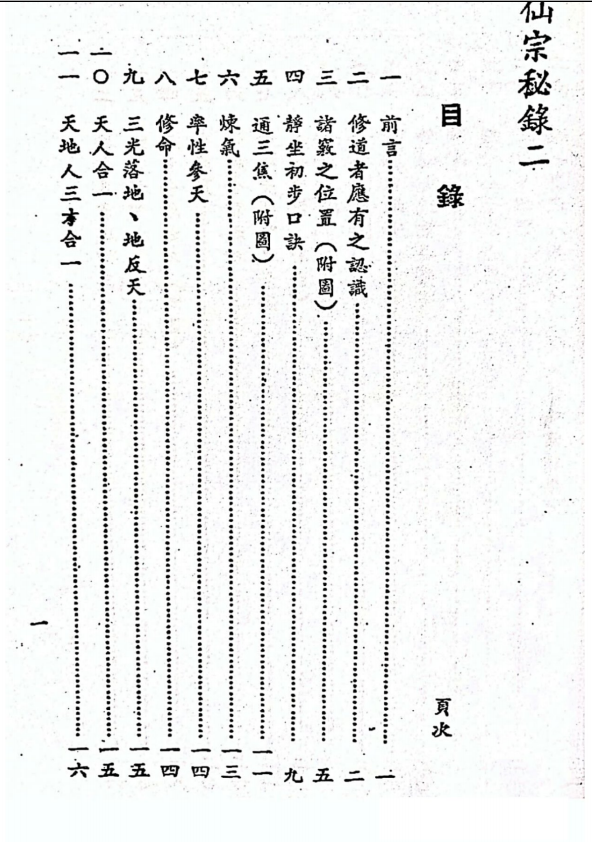 仙宗秘錄二
目錄
頁次
一 前言……一
二 修道者應有之認識……二
三 諸竅之位置（附圖）……五
四 靜坐初步口訣……九
五 通三焦（附圖）……一一
六 煉氣……一三
七 率性參天……一四
八 修命……一四
九 三光落地、地反天……一五
一〇 天人合一……一五
一一 天地人三才合一……一六
一